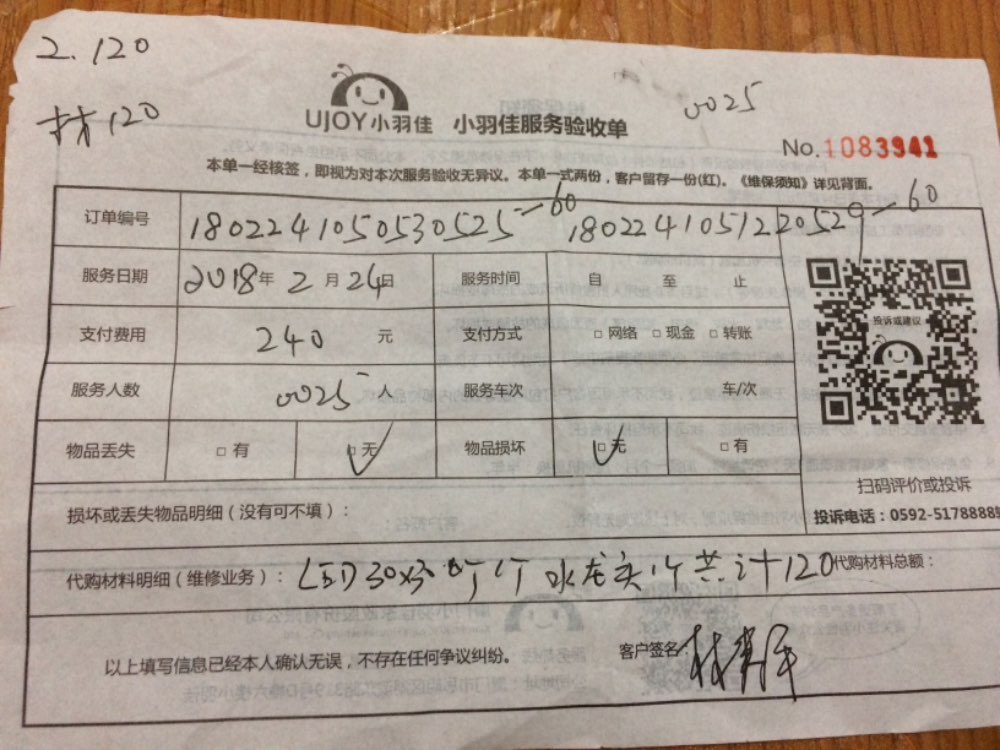 2.120
材120
0025
UJOY小羽佳 小羽佳服务验收单
No.1083941
本单一经核签，即视为对本次服务验收无异议。本单一式两份，客户留存一份(红)。《维保须知》详见背面。
订单编号 1802241050530525-60 180224105122 20529-60
服务日期 2018年 2月 24日 服务时间 自 至 止
支付费用 240 元 支付方式 □网络 □现金 □转账
投诉或建议
服务人数 0025 人 服务车次 车/次
物品丢失 □有 □无 物品损坏 □无 □有
扫码评价或投诉
损坏或丢失物品明细（没有可不填）：
投诉电话：0592-5178888
代购材料明细（维修业务）： LED 30x30 灯1个 水龙头1个 共计120 代购材料总额：
以上填写信息已经本人确认无误，不存在任何争议纠纷。 客户签名：